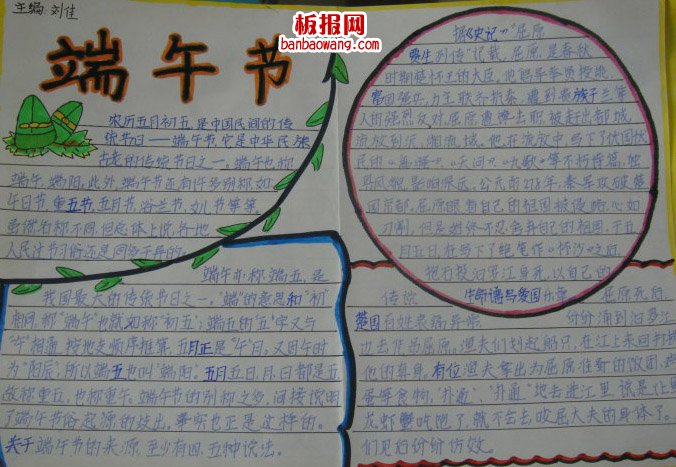 主编：刘佳
板报网
banbaowang.com
端午节
农历五月初五,是中国民间的传
统节日——端午节,它是中华民族
古老的传统节日之一。端午也称
端午,端阳。此外,端午节还有许多别称,如
午日节、重五节,五月节、浴兰节、女儿节等等
虽然名称不同,但总体上说,各地
人民过节习俗还是同多于异的。
端午亦称端五,是
我国最大的传统节日之一。"端"的意思和"初"
相同,称"端午"也就如称"初五";端五的"五"字又与
"午"相通,按地支顺序推算,五月正是"午"月,又因午时
为"阳辰",所以端五也叫"端阳"。五月五日,月、日都是五
故称重五,也称重午。端午节的别称之多,间接说明
了端午节俗起源的歧出。事实也正是这样的。
关于端午节的来源,至少有四、五种说法。
据《史记》"屈原
贾生列传"记载,屈原,是春秋
时期楚怀王的大臣。他倡导举贤授能,
富国强兵,力主联齐抗秦,遭到贵族子兰等
人的强烈反对,屈原遭馋去职,被赶出都城,
流放到沅、湘流域。他在流放中,写下了忧国忧
民的《离骚》、《天问》、《九歌》等不朽诗篇,独
具风貌,影响深远。公元前278年,秦军攻破楚
国京都。屈原眼看自己的祖国被侵略,心如
刀割,但是始终不忍舍弃自己的祖国,于五
月五日,在写下了绝笔作《怀沙》之后,
抱石投汨罗江身死,以自己的
生命谱写爱国乐章
传说 屈原死后
楚国百姓哀痛异常 纷纷涌到汨罗江
边去凭吊屈原。渔夫们划起船只,在江上来回打捞
他的真身。有位渔夫拿出为屈原准备的饭团,鸡
蛋等食物,"扑通"、"扑通"地丢进江里,说是让鱼
龙虾蟹吃饱了,就不会去咬屈大夫的身体了。
们见后纷纷仿效。